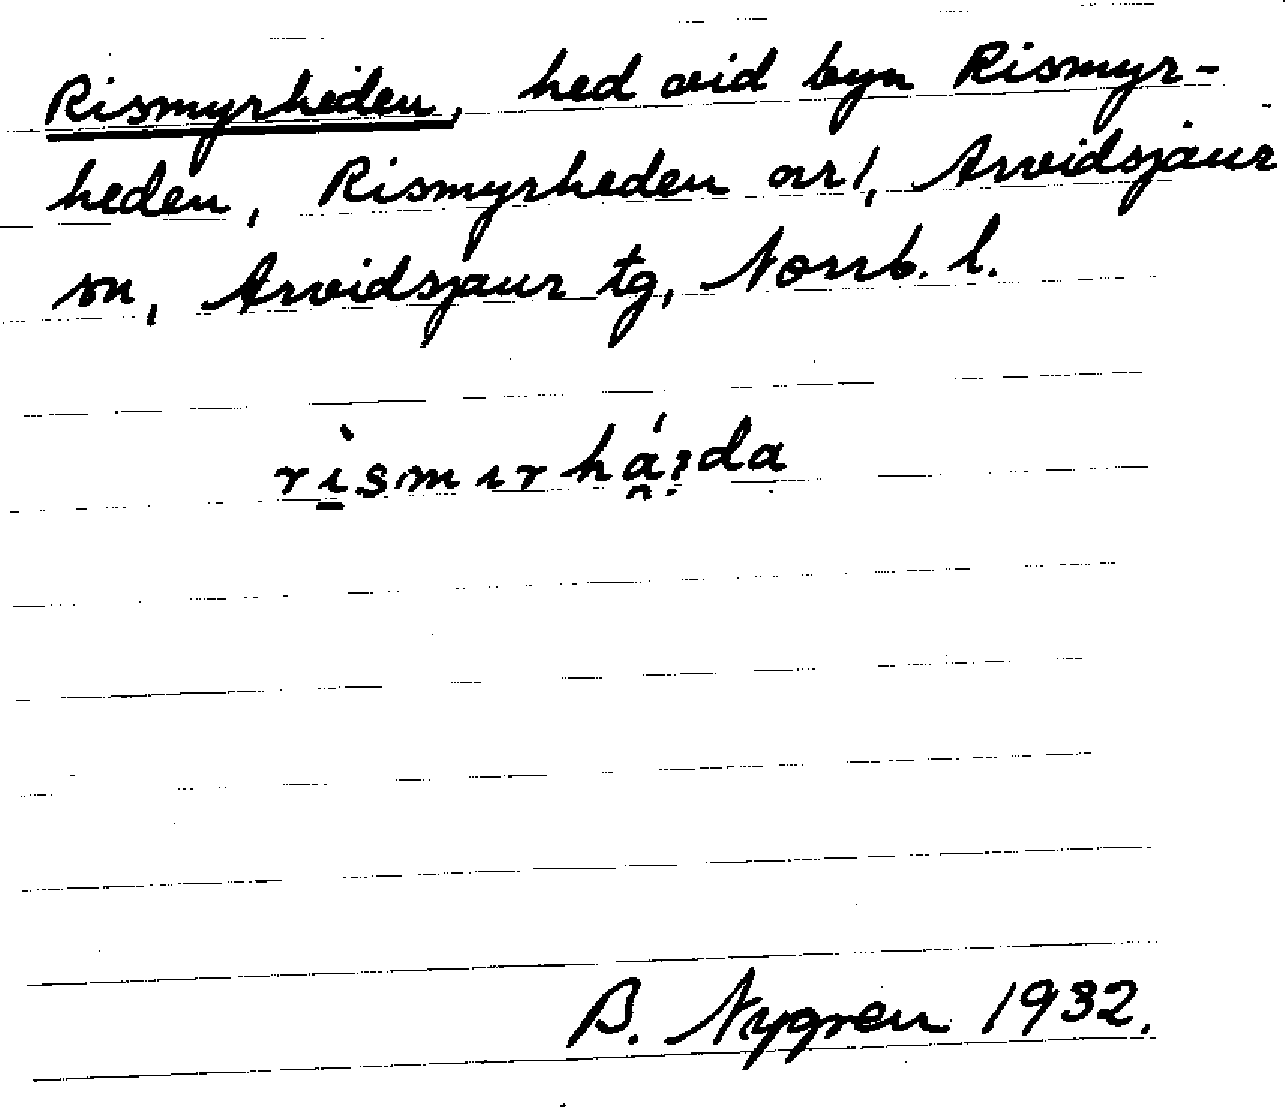 Rismyrheden, hed vid byn Rismyr-
heden, Rismyrheden nr 1, Arvidsjaur
sn, Arvidsjaur tg, Norrb. l.
B. Nygren 1932.